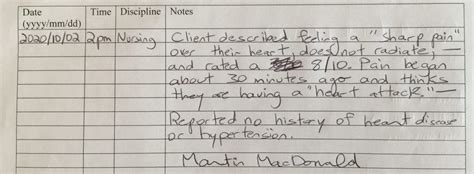 Date (yyyy/mm/dd) Time Discipline Notes
2020/10/02 2pm Nursing Client described feeling a "sharp pain"
over their heart, does not radiate, —
and rated a 8/10. Pain began
about 30 minutes ago and thinks
they are having a "heart attack." —
Reported no history of heart disease
or hypertension.
Martin MacDonald